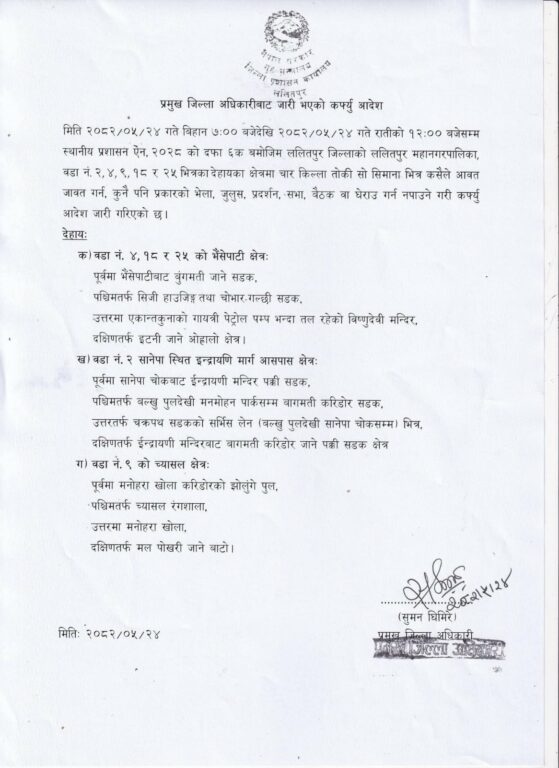 नेपाल सरकार
गृह मन्त्रालय
जिल्ला प्रशासन कार्यालय
ललितपुर
प्रमुख जिल्ला अधिकारीबाट जारी भएको कर्फ्यु आदेश
मिति २०८२/०५/२४ गते विहान ७:०० बजेदेखि २०८२/०५/२४ गते रातीको १२:०० बजेसम्म
स्थानीय प्रशासन ऐन, २०२८ को दफा ६क बमोजिम ललितपुर जिल्लाको ललितपुर महानगरपालिका,
वडा नं. २, ४, ९, १८ र २५ भित्रका देहायका क्षेत्रमा चार किल्ला तोकी सो सिमाना भित्र कसैले आवत
जावत गर्न, कुनै पनि प्रकारको भेला, जुलुस, प्रदर्शन, सभा, बैठक वा घेराउ गर्न नपाउने गरी कर्फ्यु
आदेश जारी गरिएको छ।
देहायः
क) वडा नं. ४, १८ र २५ को भैंसेपाटी क्षेत्रः
पूर्वमा भैंसेपाटीबाट बुंगमती जाने सडक,
पश्चिमतर्फ सिजी हाउजिङ्ग तथा चोभार-गल्छी सडक,
उत्तरमा एकान्तकुनाको गायत्री पेट्रोल पम्प भन्दा तल रहेको विष्णुदेवी मन्दिर,
दक्षिणतर्फ इटनी जाने ओह्रालो क्षेत्र।
ख) वडा नं. २ सानेपा स्थित इन्द्रायणि मार्ग आसपास क्षेत्रः
पूर्वमा सानेपा चोकबाट ईन्द्रायणी मन्दिर पक्की सडक,
पश्चिमतर्फ बल्खु पुलदेखी मनमोहन पार्कसम्म वागमती करिडोर सडक,
उत्तरतर्फ चक्रपथ सडकको सर्भिस लेन (बल्खु पुलदेखी सानेपा चोकसम्म) भित्र,
दक्षिणतर्फ ईन्द्रायणी मन्दिरबाट वागमती करिडोर जाने पक्की सडक क्षेत्र
ग) वडा नं. ९ को च्यासल क्षेत्रः
पूर्वमा मनोहरा खोला करिडोरको झोलुंगे पुल,
पश्चिमतर्फ च्यासल रंगशाला,
उत्तरमा मनोहरा खोला,
दक्षिणतर्फ मल पोखरी जाने बाटो।
(सुमन घिमिरे)
मितिः २०८२/०५/२४
प्रमुख जिल्ला अधिकारी
प्रमुख जिल्ला अधिकारी